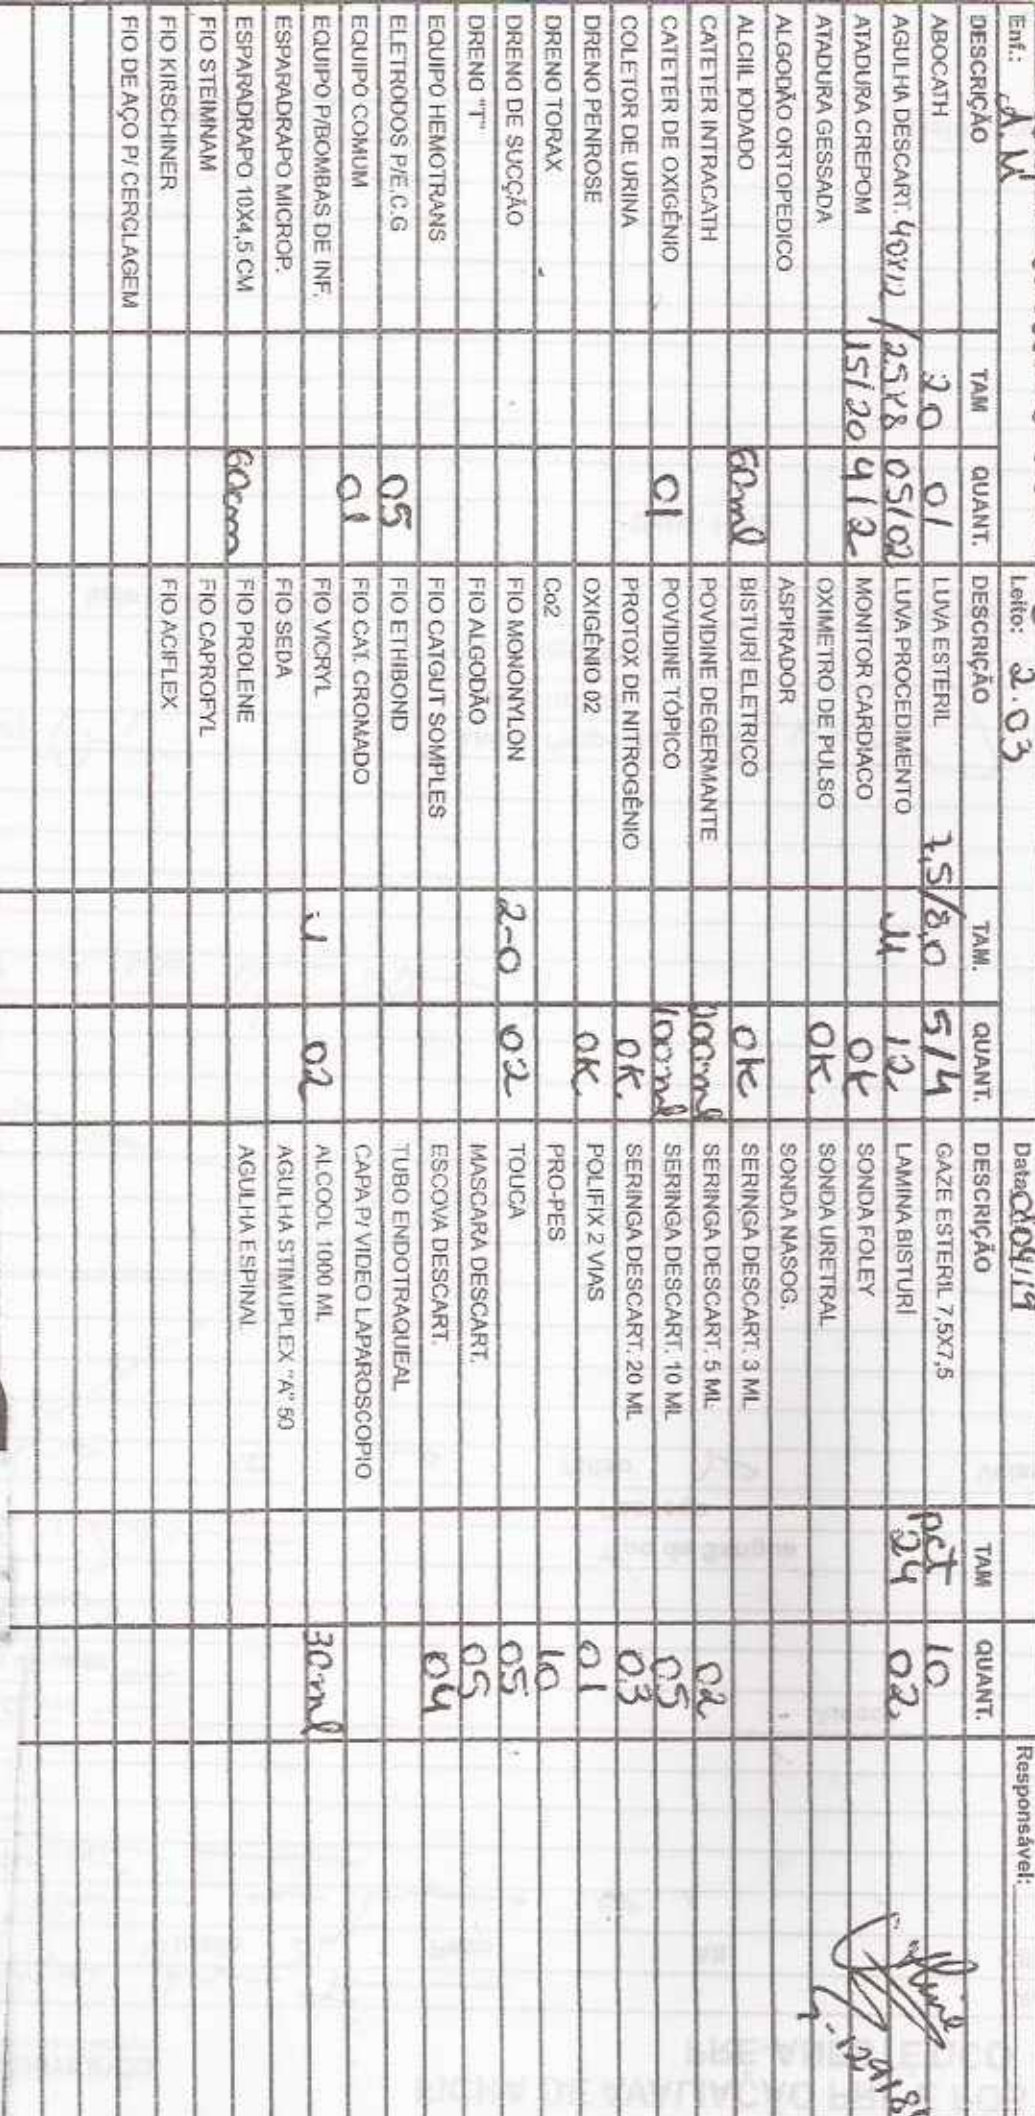 Enf.: A M Leito: 2.03 Data: 04/19 Responsável:
DESCRIÇÃO TAM QUANT. DESCRIÇÃO TAM. QUANT. DESCRIÇÃO TAM QUANT.
ABOCATH 20 01 LUVA ESTERIL 7,5/8,0 5/4 GAZE ESTERIL 7,5X7,5 pct 10
AGULHA DESCART. 40x12 / 25x8 05/02 LUVA PROCEDIMENTO M 12 LAMINA BISTURÍ 24 02
ATADURA CREPOM 15/20 4/2 MONITOR CARDIACO OK SONDA FOLEY
ATADURA GESSADA OXIMETRO DE PULSO OK SONDA URETRAL
ALGODÃO ORTOPEDICO ASPIRADOR SONDA NASOG.
ALCIIL IODADO 60ml BISTURÍ ELETRICO OK SERINGA DESCART. 3 ML
CATETER INTRACATH POVIDINE DEGERMANTE SERINGA DESCART. 5 ML 02
CATETER DE OXIGÊNIO 01 POVIDINE TÓPICO 100ml SERINGA DESCART. 10 ML 05
COLETOR DE URINA PROTOX DE NITROGÊNIO OK SERINGA DESCART. 20 ML 03
DRENO PENROSE OXIGÊNIO 02 OK POLIFIX 2 VIAS 01
DRENO TORAX Co2 PRO-PES 10
DRENO DE SUCÇÃO FIO MONONYLON 2-0 02 TOUCA 05
DRENO "T" FIO ALGODÃO MASCARA DESCART. 05
EQUIPO HEMOTRANS FIO CATGUT SOMPLES ESCOVA DESCART. 04
ELETRODOS P/E.C.G 05 FIO ETHIBOND TUBO ENDOTRAQUEAL
EQUIPO COMUM 01 FIO CAT. CROMADO CAPA P/ VIDEO LAPAROSCOPIO
EQUIPO P/BOMBAS DE INF. FIO VICRYL 02 ALCOOL 1000 ML 30ml
ESPARADRAPO MICROP. FIO SEDA AGULHA STIMUPLEX "A" 50
ESPARADRAPO 10X4,5 CM 60cm FIO PROLENE AGULHA ESPINAL
FIO STEIMNAM FIO CAPROFYL
FIO KIRSCHINER FIO ACIFLEX
FIO DE AÇO P/ CERCLAGEM